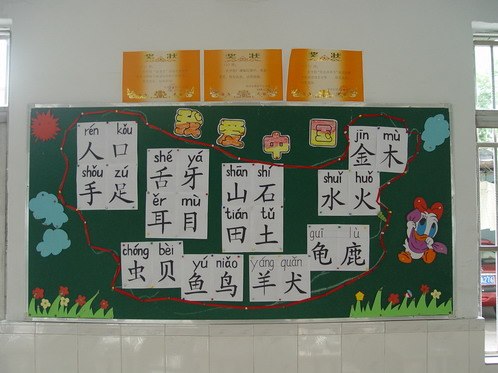 奖状
奖状
奖状
我爱中国
rén kǒu
人口
shǒu zú
手足
shé yá
舌牙
ěr mù
耳目
shān shí
山石
tián tǔ
田土
jīn mù
金木
shuǐ huǒ
水火
chóng bèi
虫贝
yú niǎo
鱼鸟
yáng quǎn
羊犬
guī lù
龟鹿